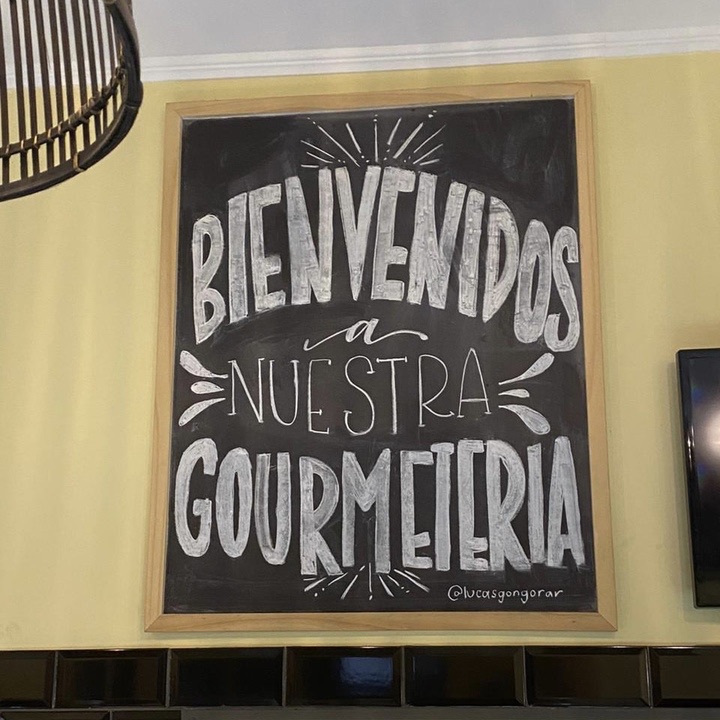 BIENVENIDOS
a
NUESTRA
GOURMETERIA
@lucasgongorar